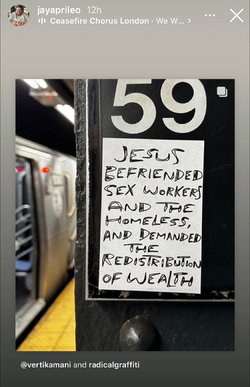 jayaprileo 12h
Ceasefire Chorus London · We W... >
59
JESUS
BEFRIENDED
SEX WORKERS
AND THE
HOMELESS,
AND DEMANDED
THE
REDISTRIBUTION
OF WEALTH
@vertikamani and radicalgraffiti